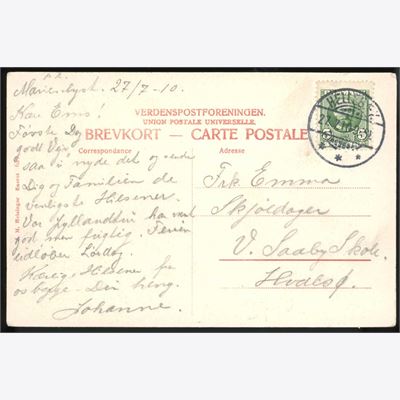 Marienlyst 27/7-10.
Kære Ems!
Første Dag
godt Vejr
saa vi nyde det og sende
Dig og Familien de
venligste Hilsener.
Vor Jyllandstur har været
god, men fugtig, Ferien
udløber Lørdag.
Kærlig Hilsen fra
os begge - Din heng.
Johanne.
VERDENSPOSTFORENINGEN.
UNION POSTALE UNIVERSELLE.
BREVKORT — CARTE POSTALE
Correspondance
Adresse
Frk Emma
Skjoldager
V. Saaby Skole.
Hvalsø.